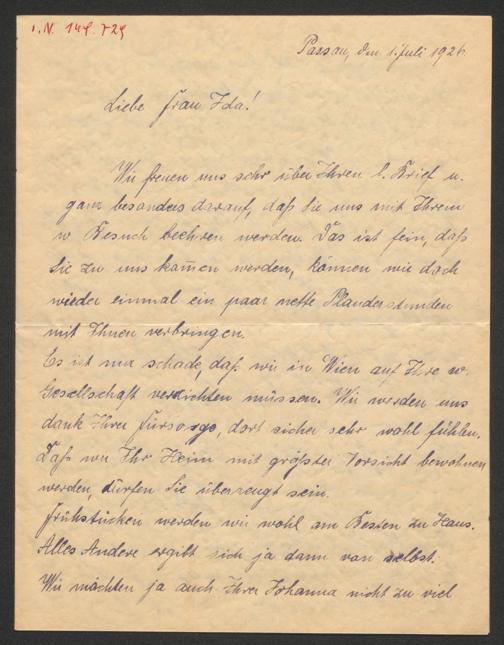 I.N. 149.729
Passau, den 1. Juli 1926
Liebe Frau Ida!
Wir freuen uns sehr über Ihren l. Brief u.
ganz besonders darauf, daß Sie uns mit Ihrem
w Besuch beehren werden. Das ist fein, daß
Sie zu uns kom̄en werden, können wir doch
wieder einmal ein paar nette Plauderstunden
mit Ihnen verbringen.
Es ist nur schade, daß wir in Wien auf Ihre w.
Gesellschaft verzichten müssen. Wir werden uns
dank Ihrer Fürsorge, dort sicher sehr wohl fühlen.
Daß wir Ihr Heim mit größter Vorsicht bewohnen
werden, dürfen Sie überzeugt sein.
Frühstücken werden wir wohl am Besten zu Haus.
Alles Andere ergibt sich ja dann von selbst.
Wir möchten ja auch Ihrer Johanna nicht zu viel